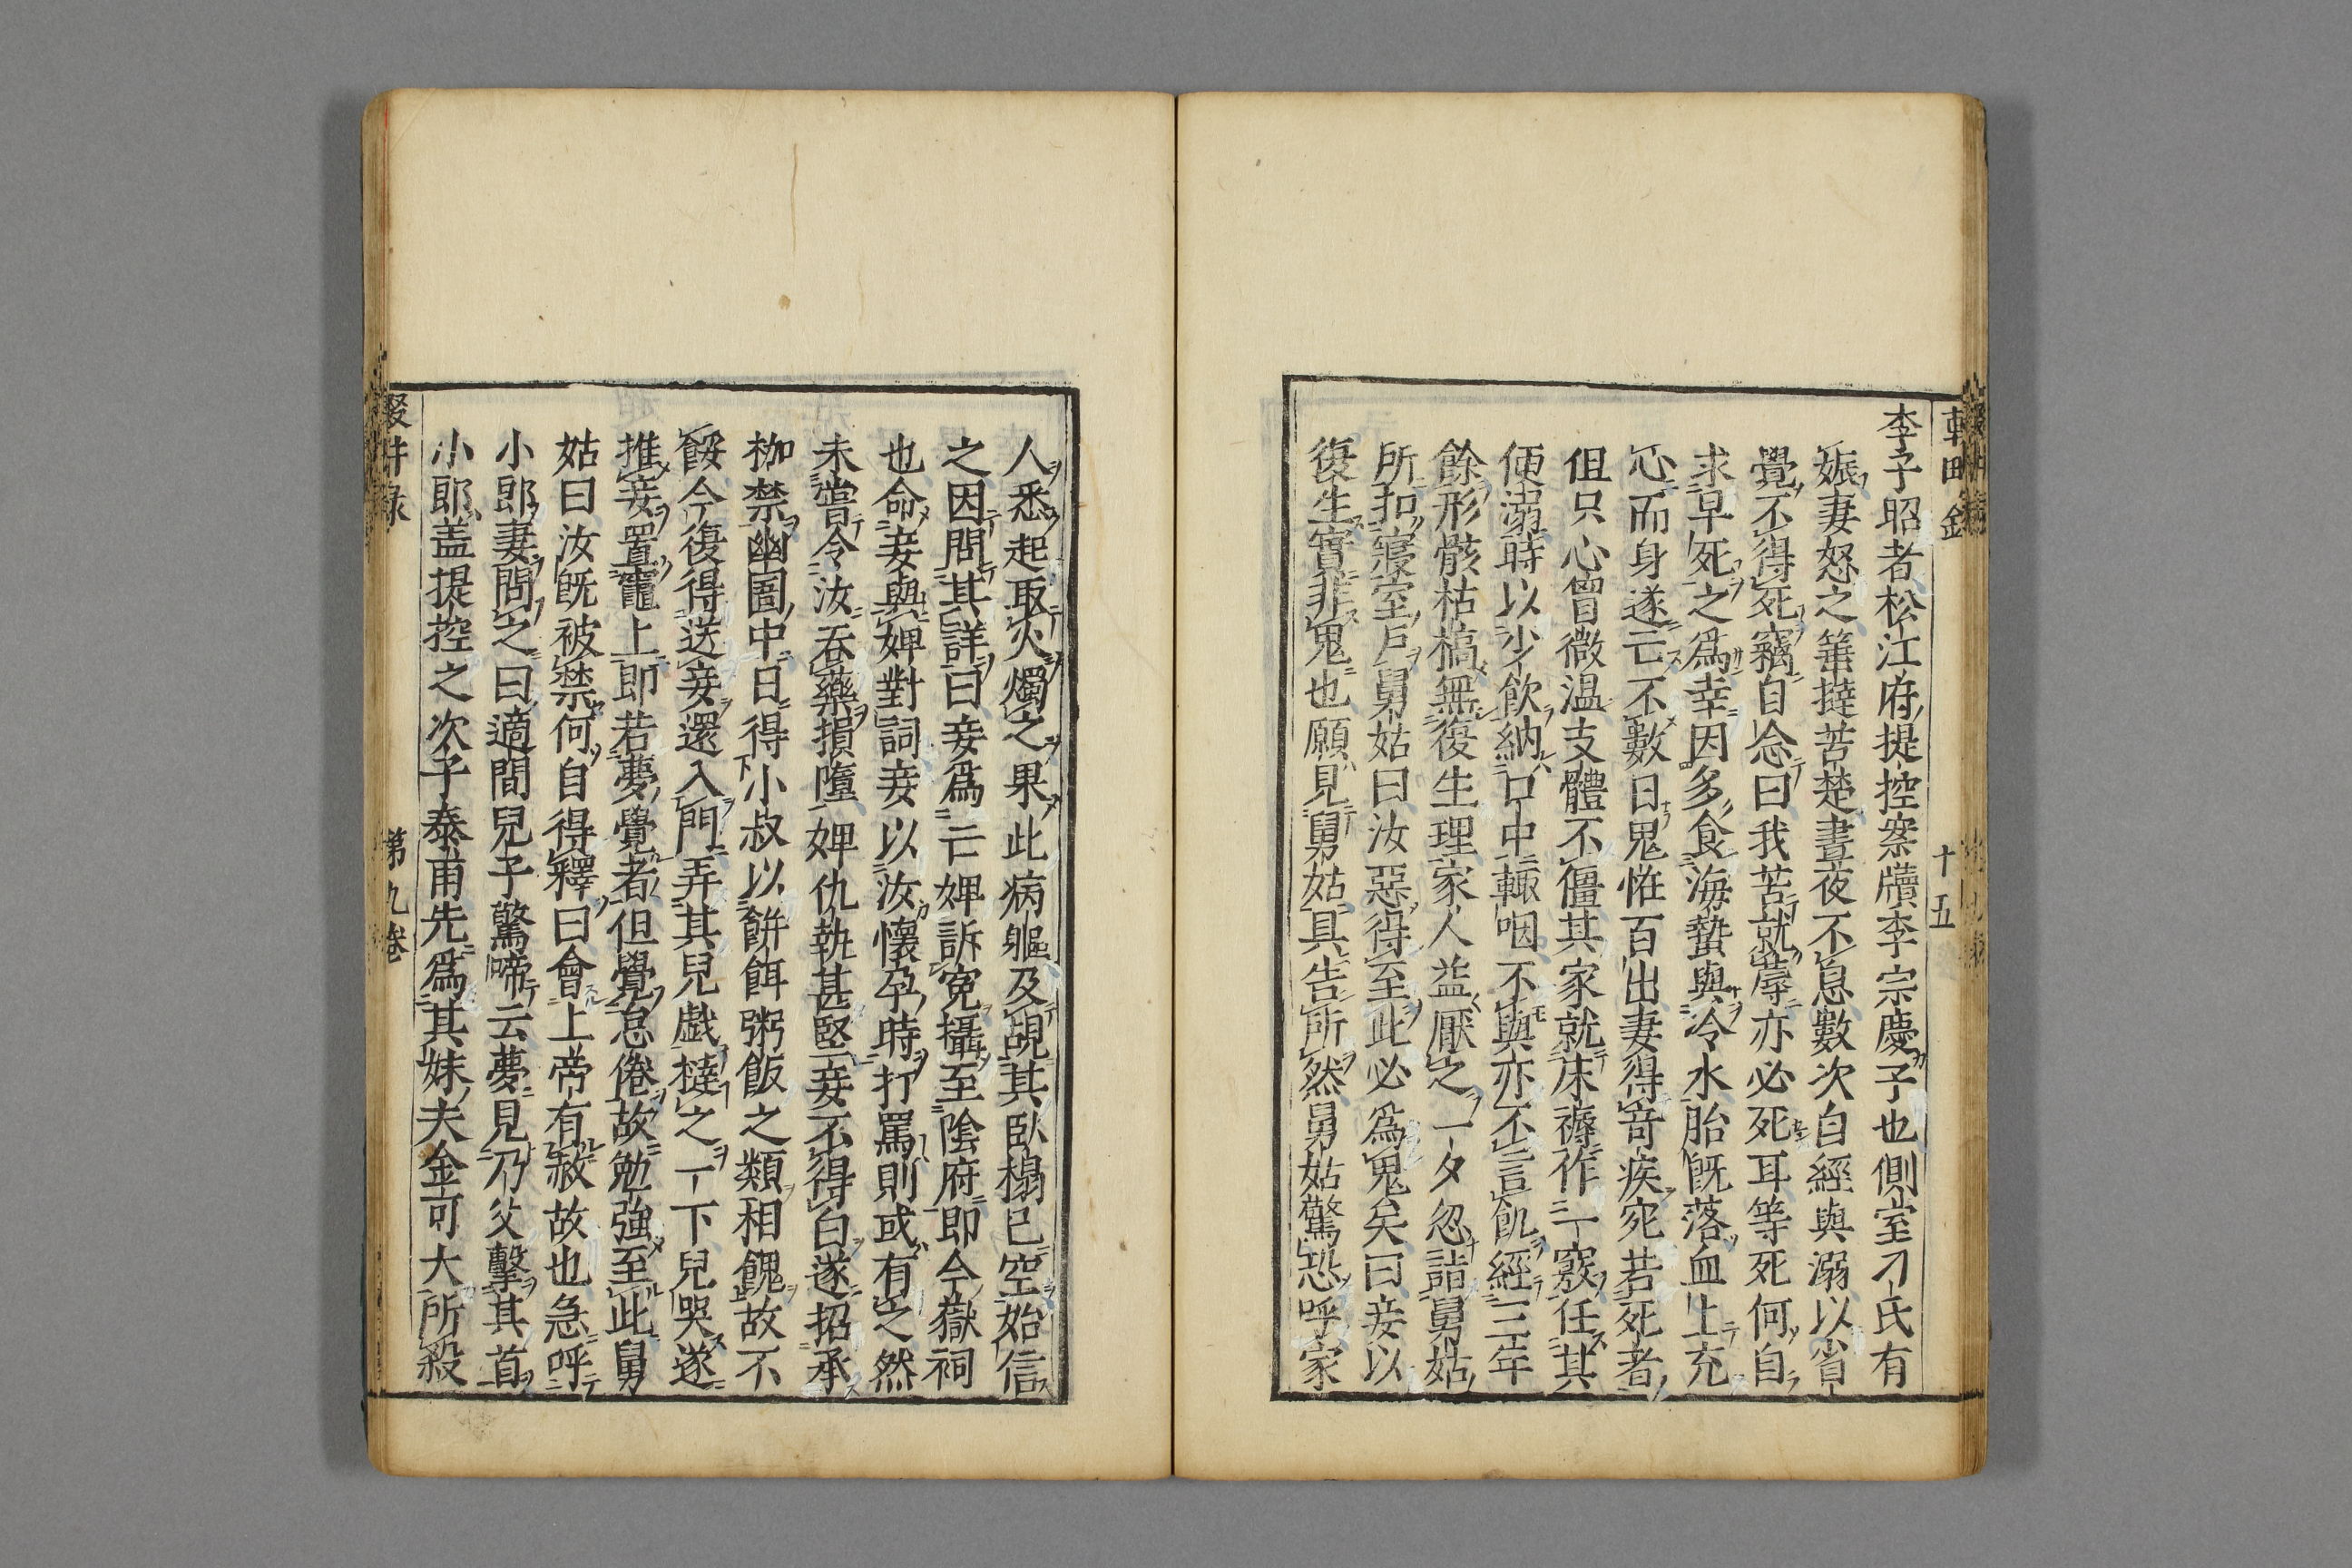 李子昭者松江府提控案牘李宗慶子也側室刁氏有
娠妻怒之箠撻苦楚晝夜不息數次自經與溺以省
覺不得死竊自念曰我苦就蓐亦必死耳等死何自
求早死之爲幸因多食海蟄與冷水胎既落血上充
心而身遂亡不數日鬼恠百出妻得奇疾宛若死者
但只心曾微温支體不僵其家就床褥作一竅任其
便溺時以少飲納口中輙咽不與亦不言飢經三年
餘形骸枯槁無復生理家人益厭之一夕忽詣舅姑
所扣寢室戶舅姑曰汝惡得至此必爲鬼矣曰妾以
復生實非鬼也願見舅姑具告所然舅姑驚恐呼家
十五
人悉起取火燭之果此病軀及覘其臥榻已空始信
之因問其詳曰妾爲亡婢訴寃攝至陰府即今嶽祠
也命妾與婢對詞妾以汝懷孕時打罵則或有之然
未嘗令汝吞藥損墮婢仇執甚堅妾不得白遂招承
枷禁幽圄中日得小叔以餅餌粥飯之類相餽故不
餒今復得送妾還入門弄其兒戲撻之一下兒哭遂
推妾置竈上即若夢覺者但覺怠倦故勉強至此舅
姑曰汝既被禁何自得釋曰會上帝有赦故也急呼
小郎妻問之曰適間兒子驚啼云夢見乃父擊其首
小郎盖提控之次子泰甫先爲其妹夫金可大所殺
輟畊録
第九卷